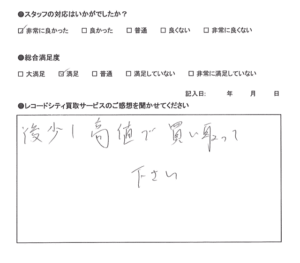 ●スタッフの対応はいかがでしたか?
☑ 非常に良かった □ 良かった □ 普通 □ 良くない □ 非常に良くない
●総合満足度
□ 大満足 ☑ 満足 □ 普通 □ 満足していない □ 非常に満足していない
記入日: 年 月 日
●レコードシティ買取サービスのご感想を聞かせてください
後少し高値で買い取って
下さい